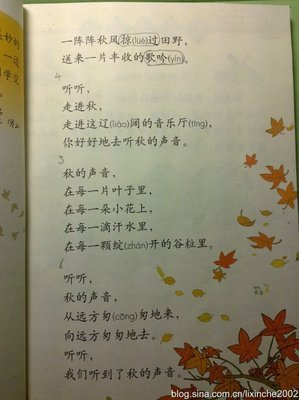 一阵阵秋风掠(lüè)过田野，
送来一片丰收的歌吟(yín)。
4
听听，
走进秋，
走进这辽(liáo)阔的音乐厅(tīng)，
你好好地去听秋的声音。
5
秋的声音，
在每一片叶子里，
在每一朵小花上，
在每一滴汗水里，
在每一颗绽(zhàn)开的谷粒里。
6
听听，
秋的声音，
从远方匆(cōng)匆地来，
向远方匆匆地去。
听听，
我们听到了秋的声音。
blog.sina.com.cn/lixinche2002